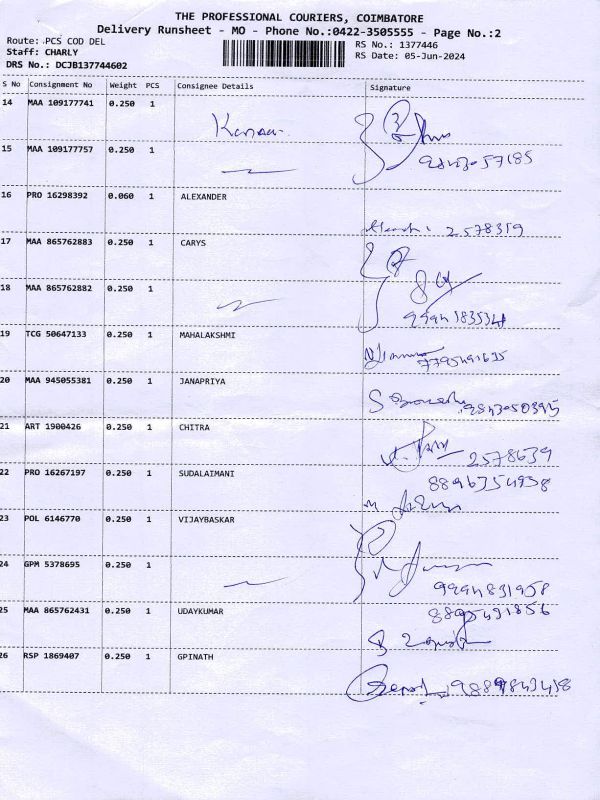 THE PROFESSIONAL COURIERS, COIMBATORE
Delivery Runsheet - MO - Phone No.:0422-3505555 - Page No.:2
Route: PCS COD DEL
RS No.: 1377446
Staff: CHARLY
RS Date: 05-Jun-2024
DRS No.: DCJB137744602
S No Consignment No Weight PCS Consignee Details Signature
14 MAA 109177741 0.250 1
15 MAA 109177757 0.250 1
16 PRO 16298392 0.060 1 ALEXANDER
2578319
17 MAA 865762883 0.250 1 CARYS
18 MAA 865762882 0.250 1
19 TCG 50647133 0.250 1 MAHALAKSHMI
20 MAA 945055381 0.250 1 JANAPRIYA
21 ART 1900426 0.250 1 CHITRA
2578639
22 PRO 16267197 0.250 1 SUDALAIMANI
8896354938
23 POL 6146770 0.250 1 VIJAYBASKAR
24 GPM 5378695 0.250 1
9994831958
25 MAA 865762431 0.250 1 UDAYKUMAR
26 RSP 1869407 0.250 1 GPINATH
9889843418